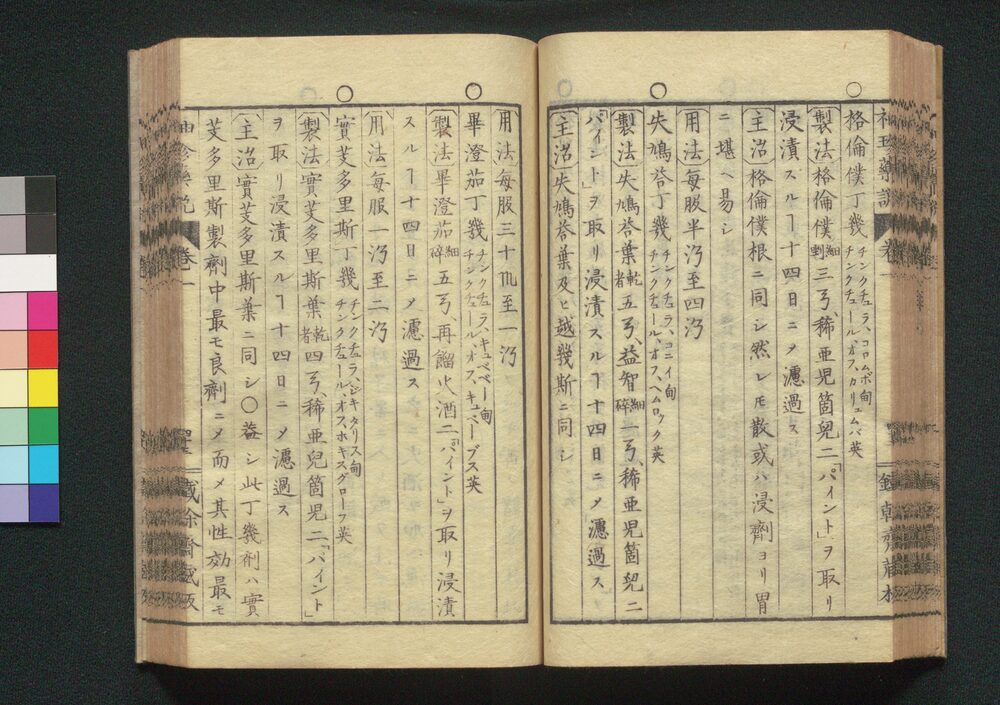 格倫僕丁幾 チンクチュラ、コロムボ甸 チンクチュール、オフ、カリュムバ英
〔製法〕格倫僕細剉三ㄢ、稀亜児箇児二「パイント」ヲ取リ
浸漬スルヿ十四日ニメ濾過ス
〔主治〕格倫僕根ニ同シ然レモ散或ハ浸劑ヨリ胃
ニ堪ヘ易シ
〔用法〕毎服半至四
失鳩荅丁幾 チンクチュラ、コニイ甸 チンクチュール、オフ、ヘムロック英
〔製法〕失鳩荅葉乾者五ㄢ、益智細碎一ㄢ、稀亜児箇児二
「パイント」ヲ取リ浸漬スルヿ十四日ニメ濾過ス
〔主治〕失鳩荅葉及ヒ越幾斯ニ同シ
〔用法〕毎服三十至一
畢澄茄丁幾 チンクチュラ、キュベベー甸 チンクチュール、オフ、キュベーブス英
〔製法〕畢澄茄細碎五ㄢ、再餾火酒二「パイント」ヲ取リ浸漬
スルヿ十四日ニメ濾過ス
〔用法〕毎服一至二
實芰多里斯丁幾 チンクチュラ、ジキタリス甸 チンクチュール、オフ、ホキスグローフ英
〔製法〕實芰多里斯葉乾者四ㄢ、稀亜兒箇児二「パイント」
ヲ取リ浸漬スルヿ十四日ニメ濾過ス
〔主治〕實芰多里斯葉ニ同シ〇益シ此丁幾剤ハ實
芰多里斯製劑中最モ良劑ニメ而メ其性効最モ